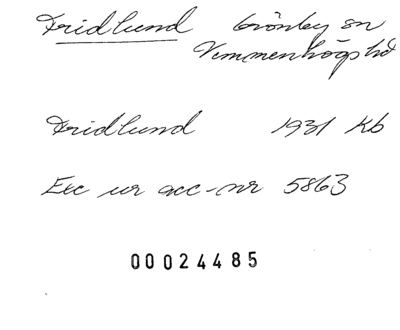 Fridlund Grönby sn
Vemmenhögs hd
Fridlund 1931 Kb
Exc ur acc-nr 5863
00024485